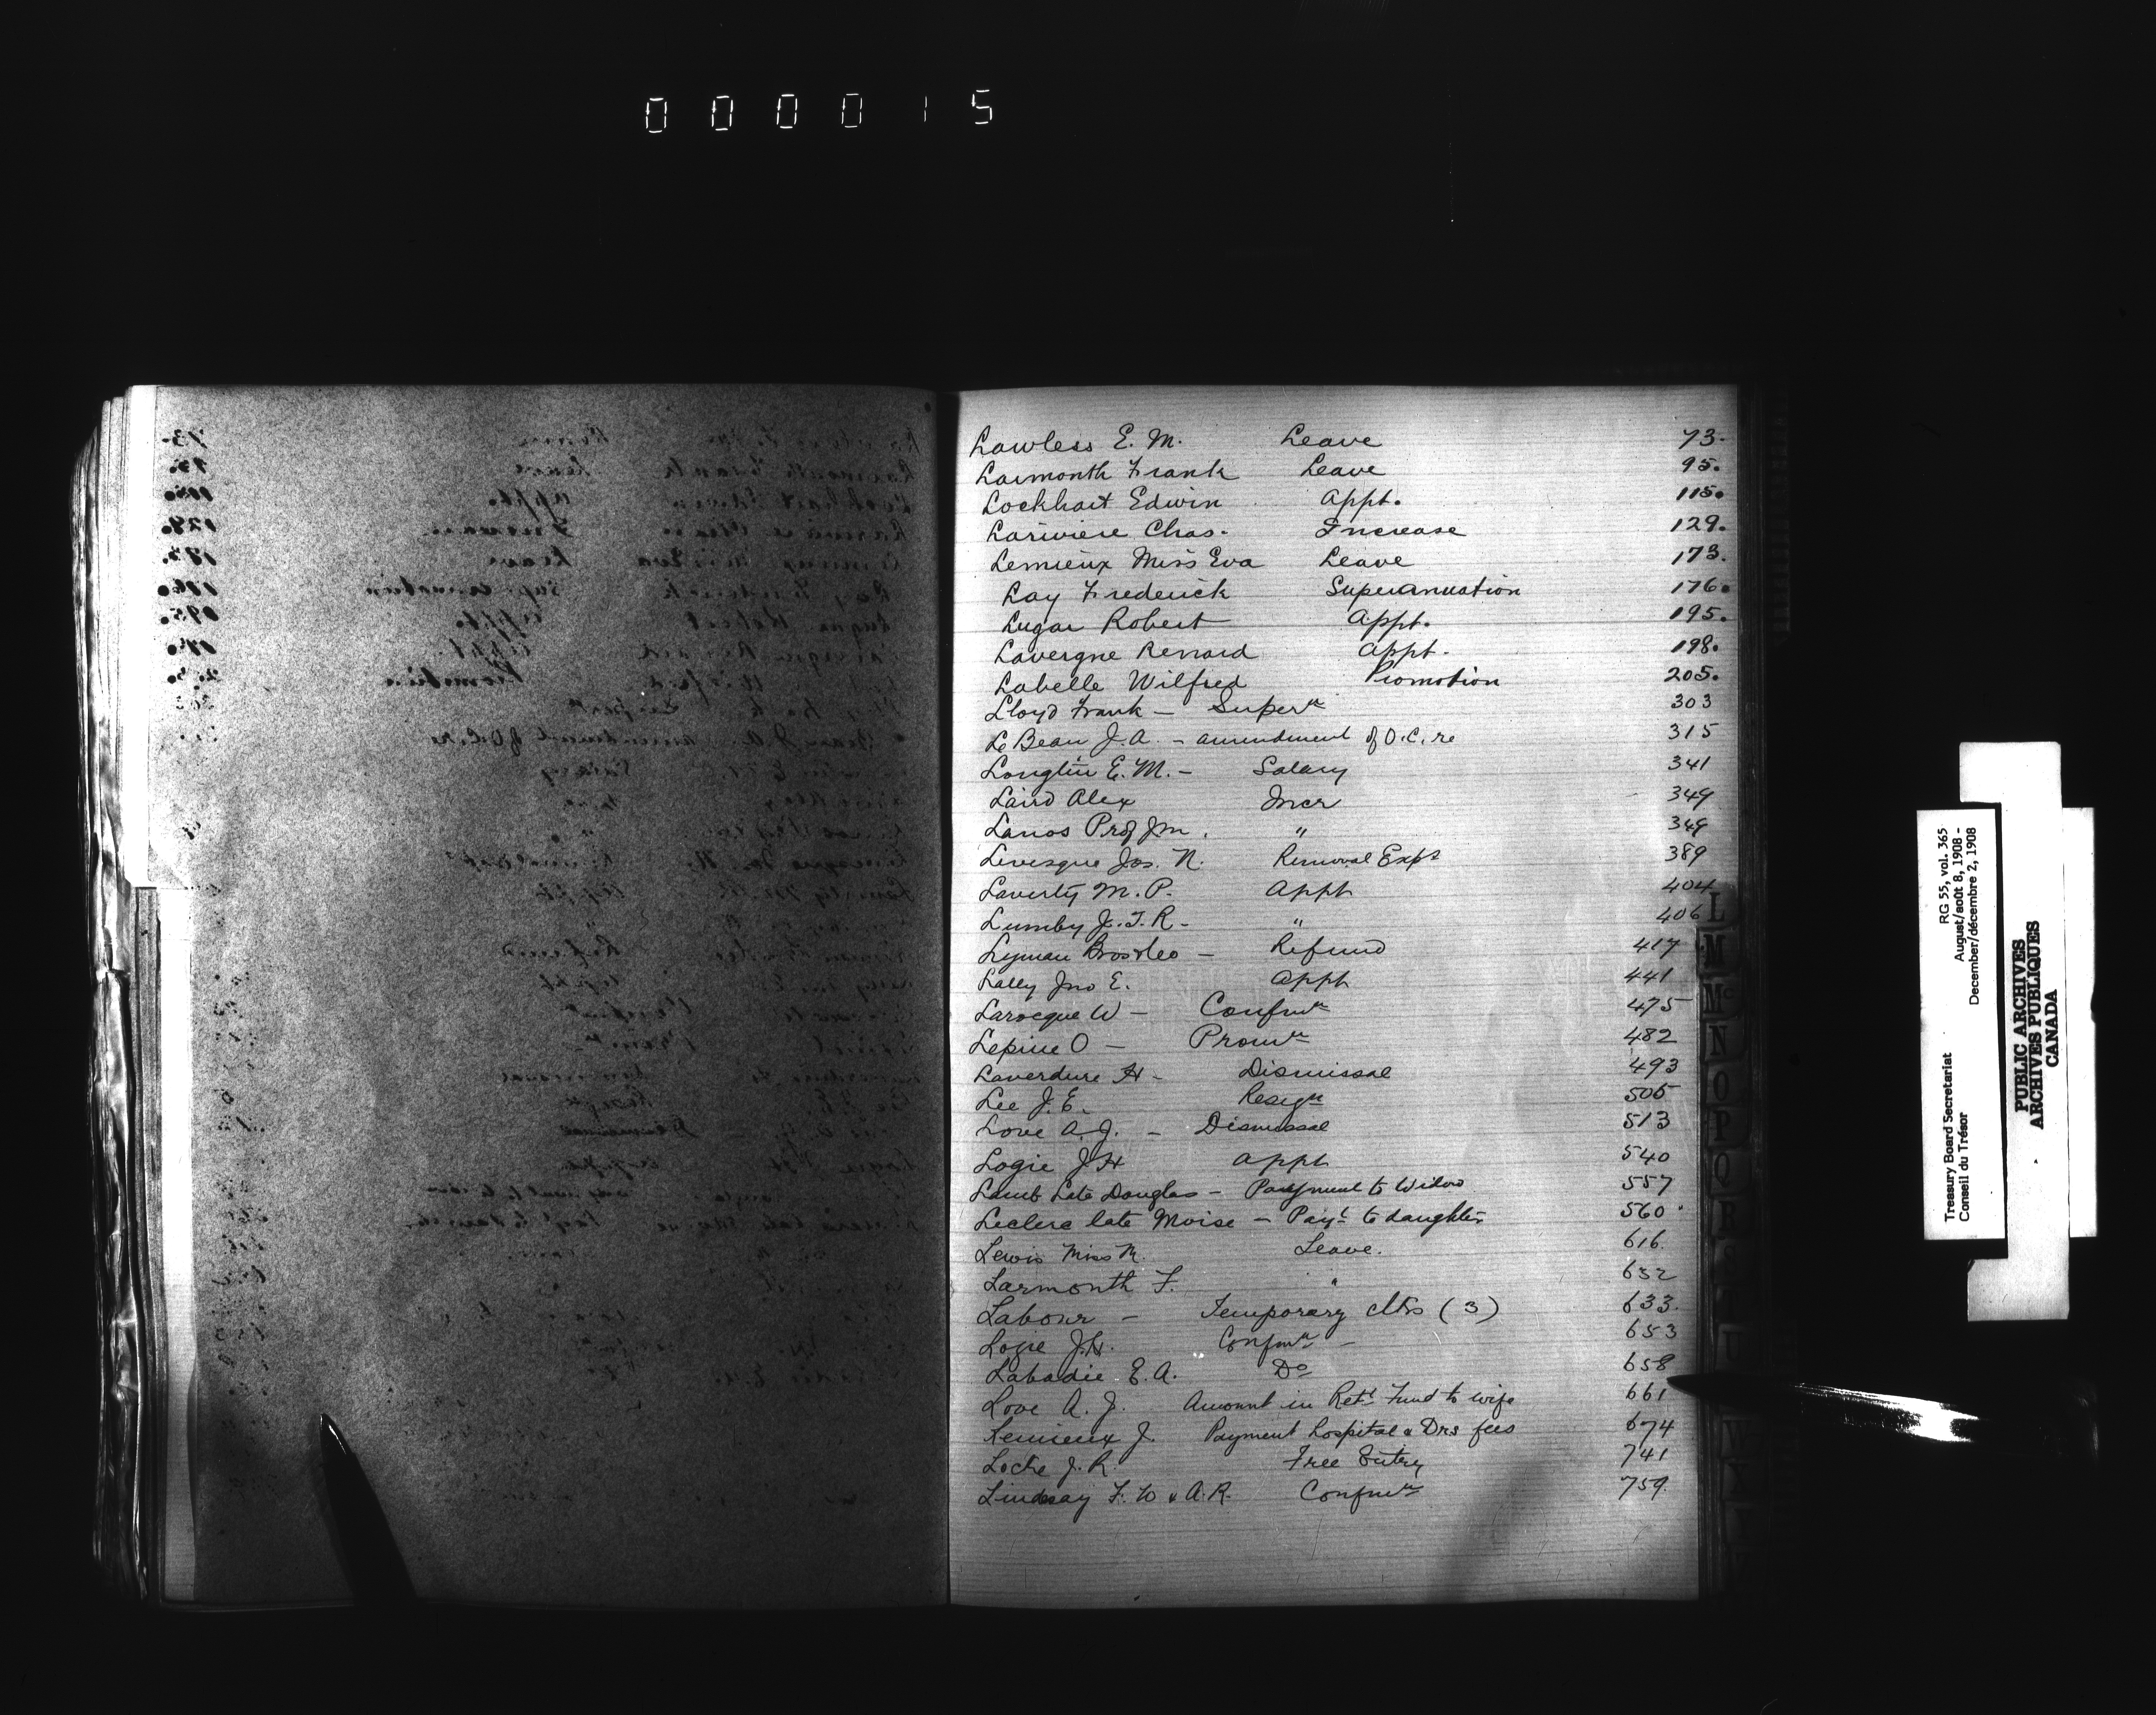 000015
Lawless E. M. Leave 73.
Larmonth Frank Leave 95.
Lockhart Edwin Appt. 115.
Lariviere Chas. Increase 129.
Lemieux Miss Eva Leave 173.
Lay Frederick Superannuation 176.
Lugar Robert Appt. 195.
Lavergne Renard Appt. 198.
Labelle Wilfred Promotion 205.
Lloyd Frank - Superⁿ 303
LeBeau J. A. - amendment of O.C. re 315
Longtin E. M. - Salary 341
Laird Alex Incr 349
Lanos Prof J m. " 349
Levesque Jos. N. Removal Expˢ 389
Laverty M. P. Appt 404
Lumby J. T. R. - " 406
Lyman Bros & Co - Refund 417
Lally Jno E. Appt 441
Larocque W - Confmⁿ 475
Lepine O - Promⁿ 482
Laverdure H - Dismissal 493
Lee J. E. Resigⁿ 505
Love A. J. - Dismissal 513
Logie J H Appt 540
Lamb Late Douglas - Payment to Widow 557
Leclerc late Moise - Payᵗ to daughter 560
Lewis Miss M. Leave. 616.
Larmonth F. " 632
Labour - Temporary Clks (3) 633.
Logie J. H. Confmⁿ - 653
Labadie E. A. Dº 658
Love A. J. Amount in Retᵗ Fund to wife 661
Lemieux J. Payment hospital & Drs fees 674
Locke J. R. Free Entry 741
Lindsay F. W & A. R. Confmⁿ 759.
L
M
Mc
N
O
P
Q
R
S
U
W
Treasury Board Secretariat RG 55, vol. 365
Conseil du Trésor August/août 8, 1908 -
December/décembre 2, 1908
PUBLIC ARCHIVES
ARCHIVES PUBLIQUES
CANADA